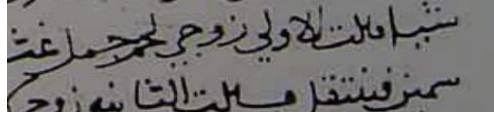 شيا قالت الاولى زوجي لحم جمل غث
سمين فينتقل قالت الثانية زوجي